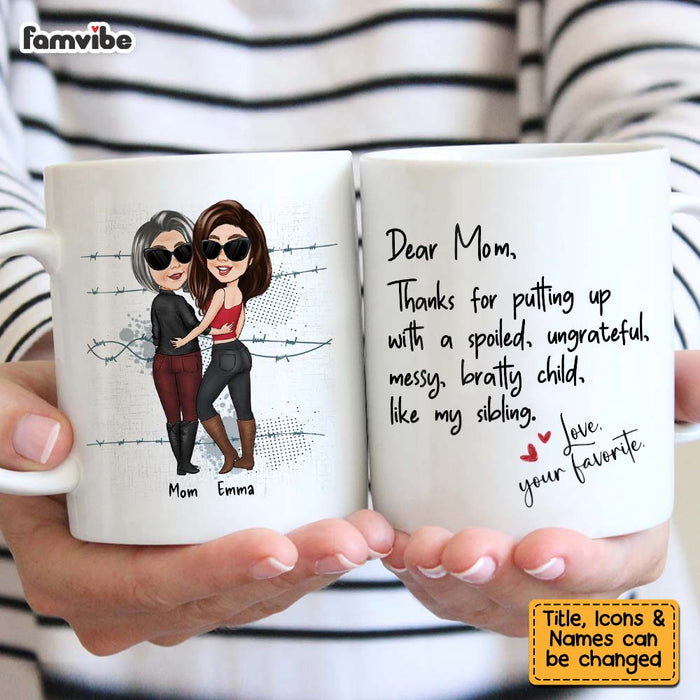 famvibe
Mom Emma
Dear Mom,
Thanks for putting up
with a spoiled, ungrateful,
messy, bratty child,
like my sibling.
Love,
your favorite.
Title, Icons &
Names can
be changed